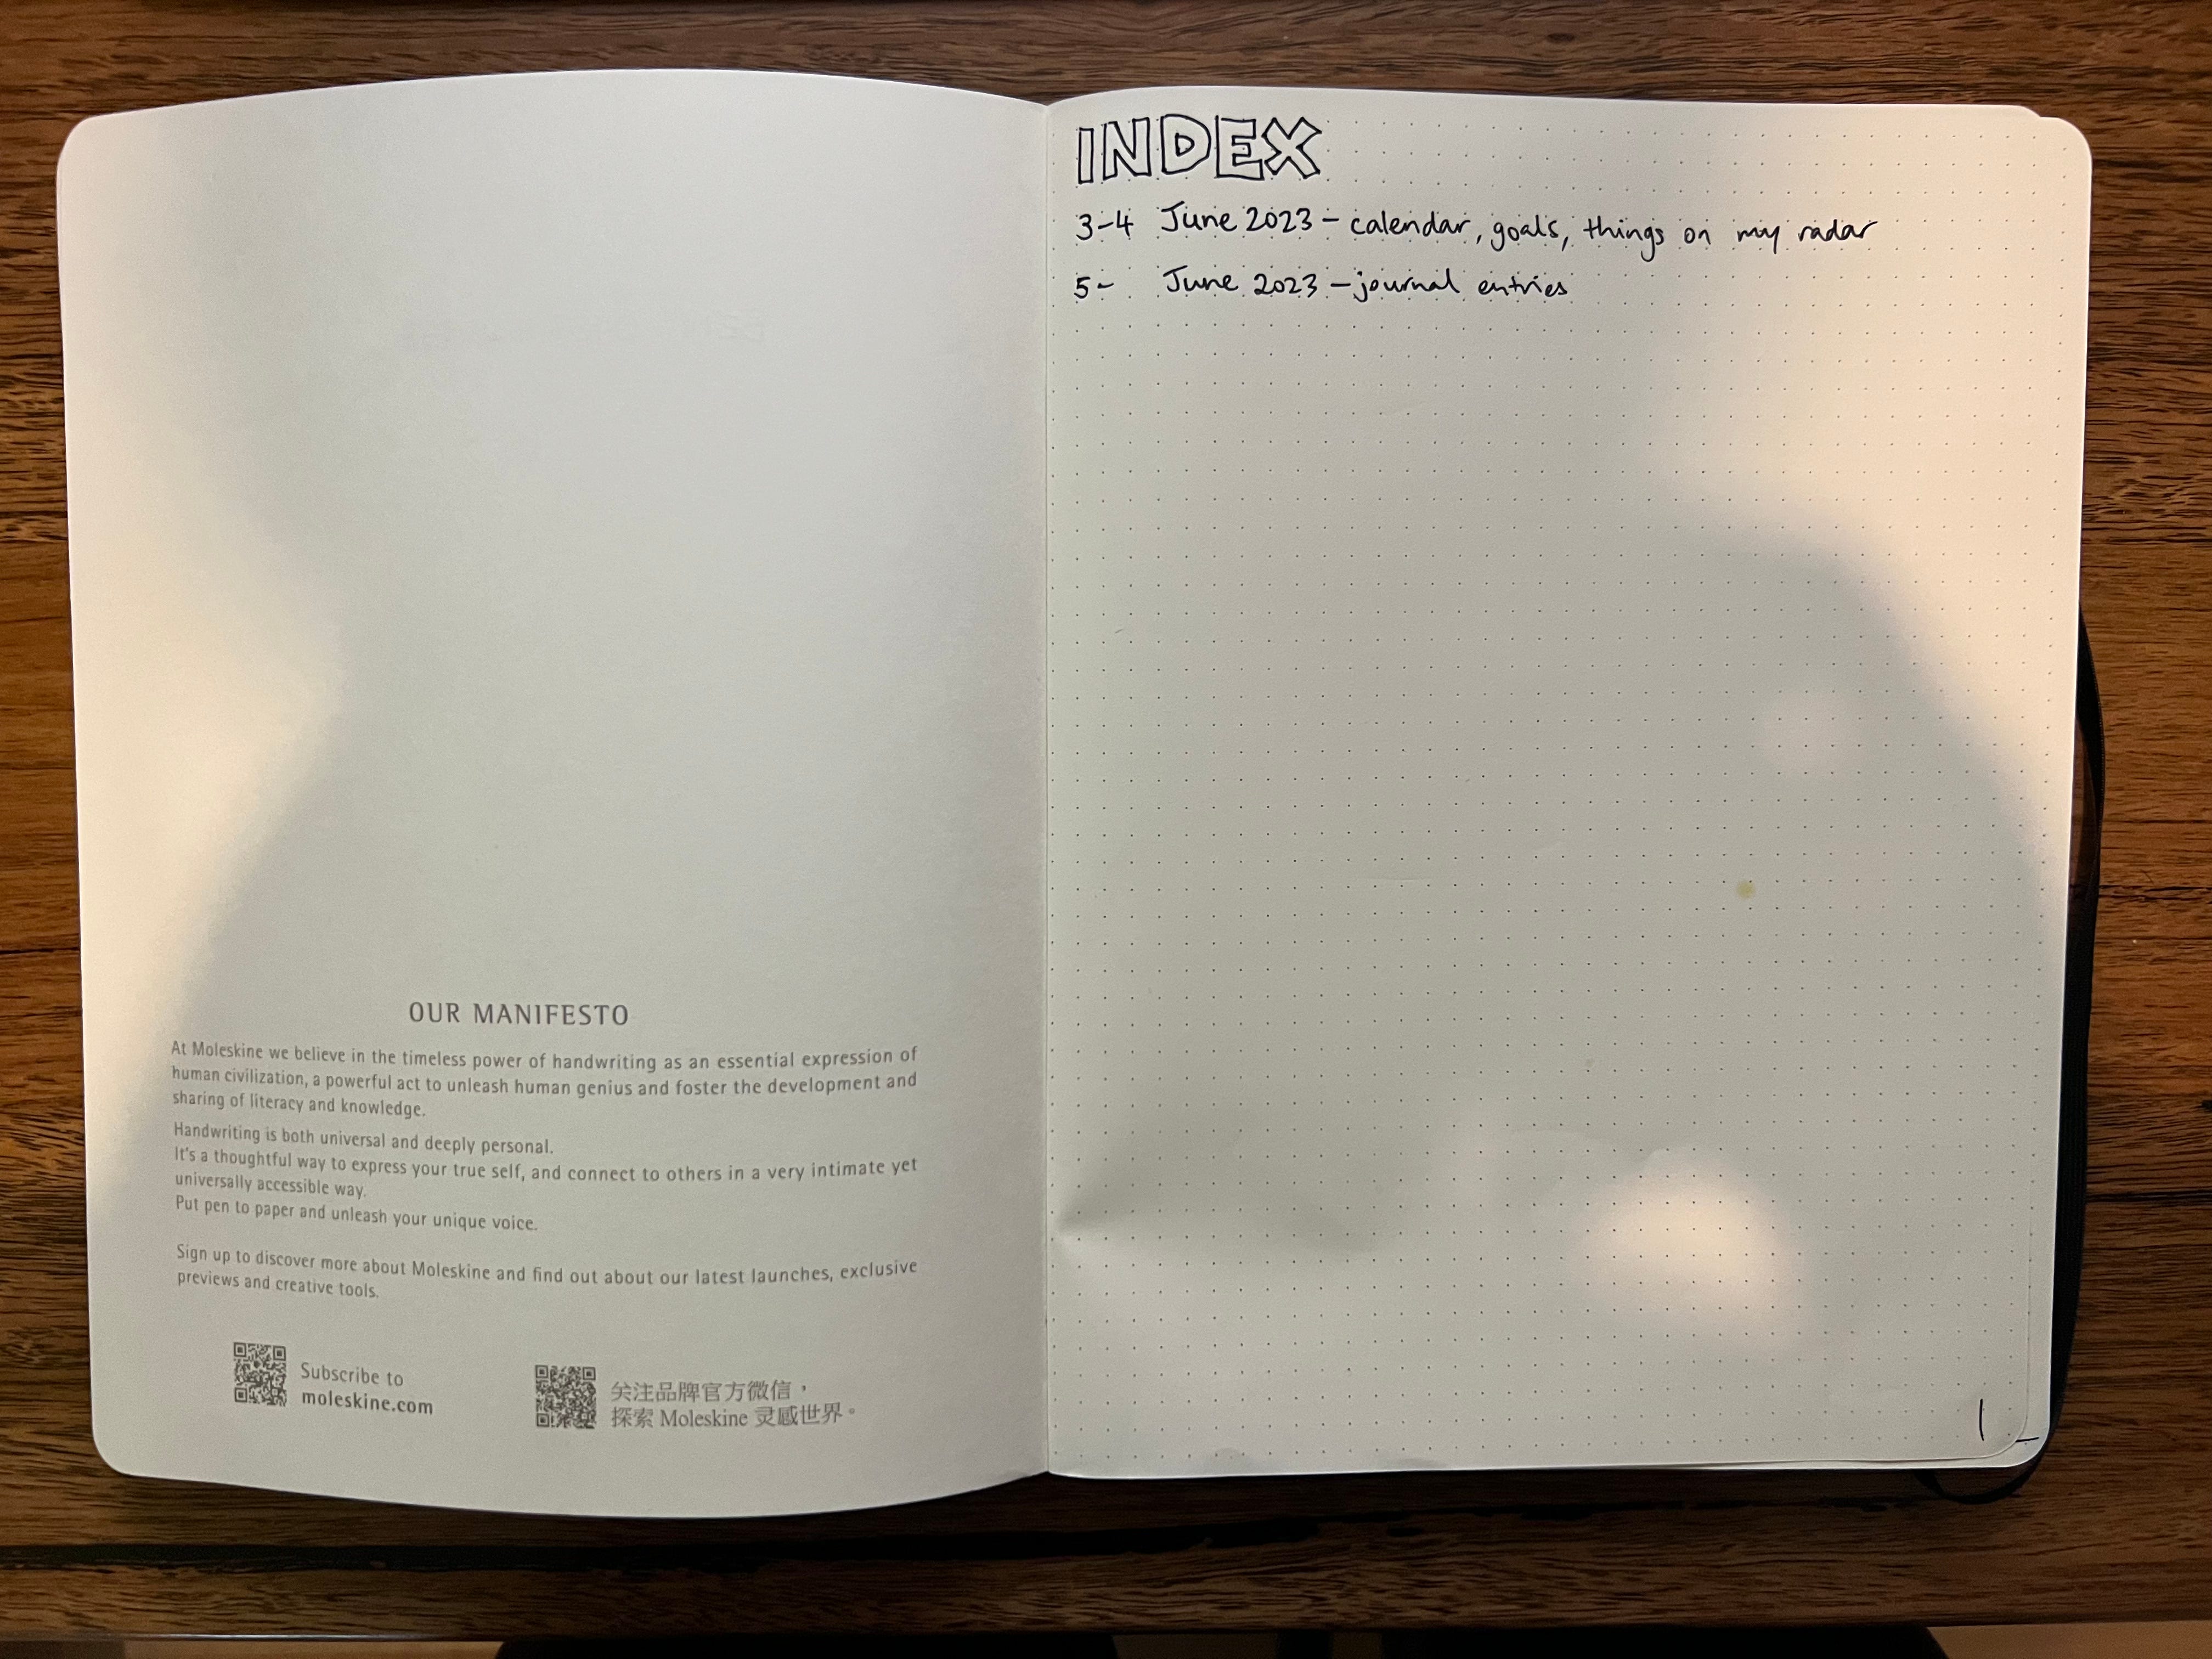 OUR MANIFESTO
At Moleskine we believe in the timeless power of handwriting as an essential expression of
human civilization, a powerful act to unleash human genius and foster the development and
sharing of literacy and knowledge.
Handwriting is both universal and deeply personal.
It's a thoughtful way to express your true self, and connect to others in a very intimate yet
universally accessible way.
Put pen to paper and unleash your unique voice.
Sign up to discover more about Moleskine and find out about our latest launches, exclusive
previews and creative tools.
Subscribe to
moleskine.com
关注品牌官方微信，
探索 Moleskine 灵感世界。
INDEX
3-4 June 2023 - calendar, goals, things on my radar
5- June 2023 - journal entries
1